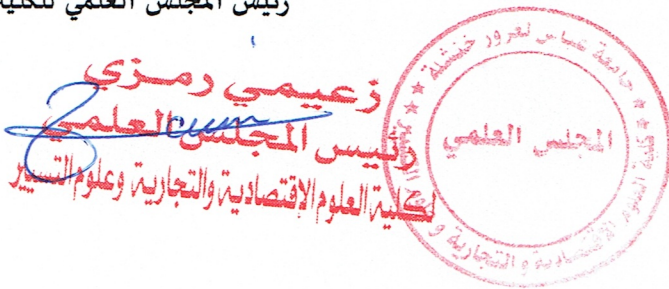 رئيس المجلس العلمي للكلية
زعيمي رمزي
رئيس المجلس العلمي
لكلية العلوم الاقتصادية والتجارية وعلوم التسيير
جامعة عباس لغرور خنشلة
المجلس العلمي
كلية العلوم الاقتصادية و التجارية و